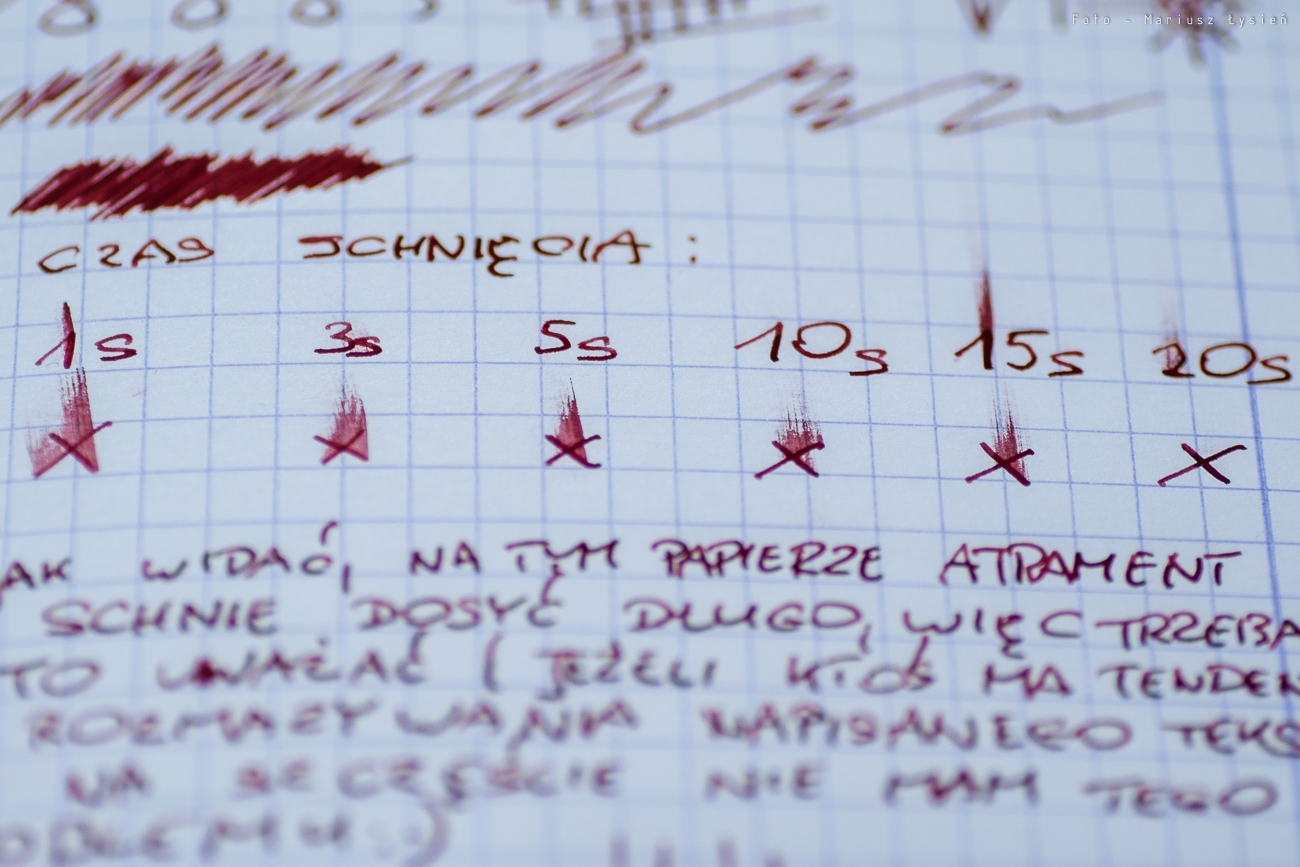 Foto - Mariusz Łysień
CZAS SCHNIĘCIA :
1s 3s 5s 10s 15s 20s
AK WIDAĆ, NA TYM PAPIERZE ATRAMENT
SCHNIE DOSYĆ DŁUGO, WIĘC TRZEBA
TO UWAŻAĆ ( JEŻELI KTOŚ MA TENDEN
ROZMAZYWANIA NAPISANEGO TEKS
NA SZCZĘŚCIE NIE MAM TEGO
OBLEMU :)